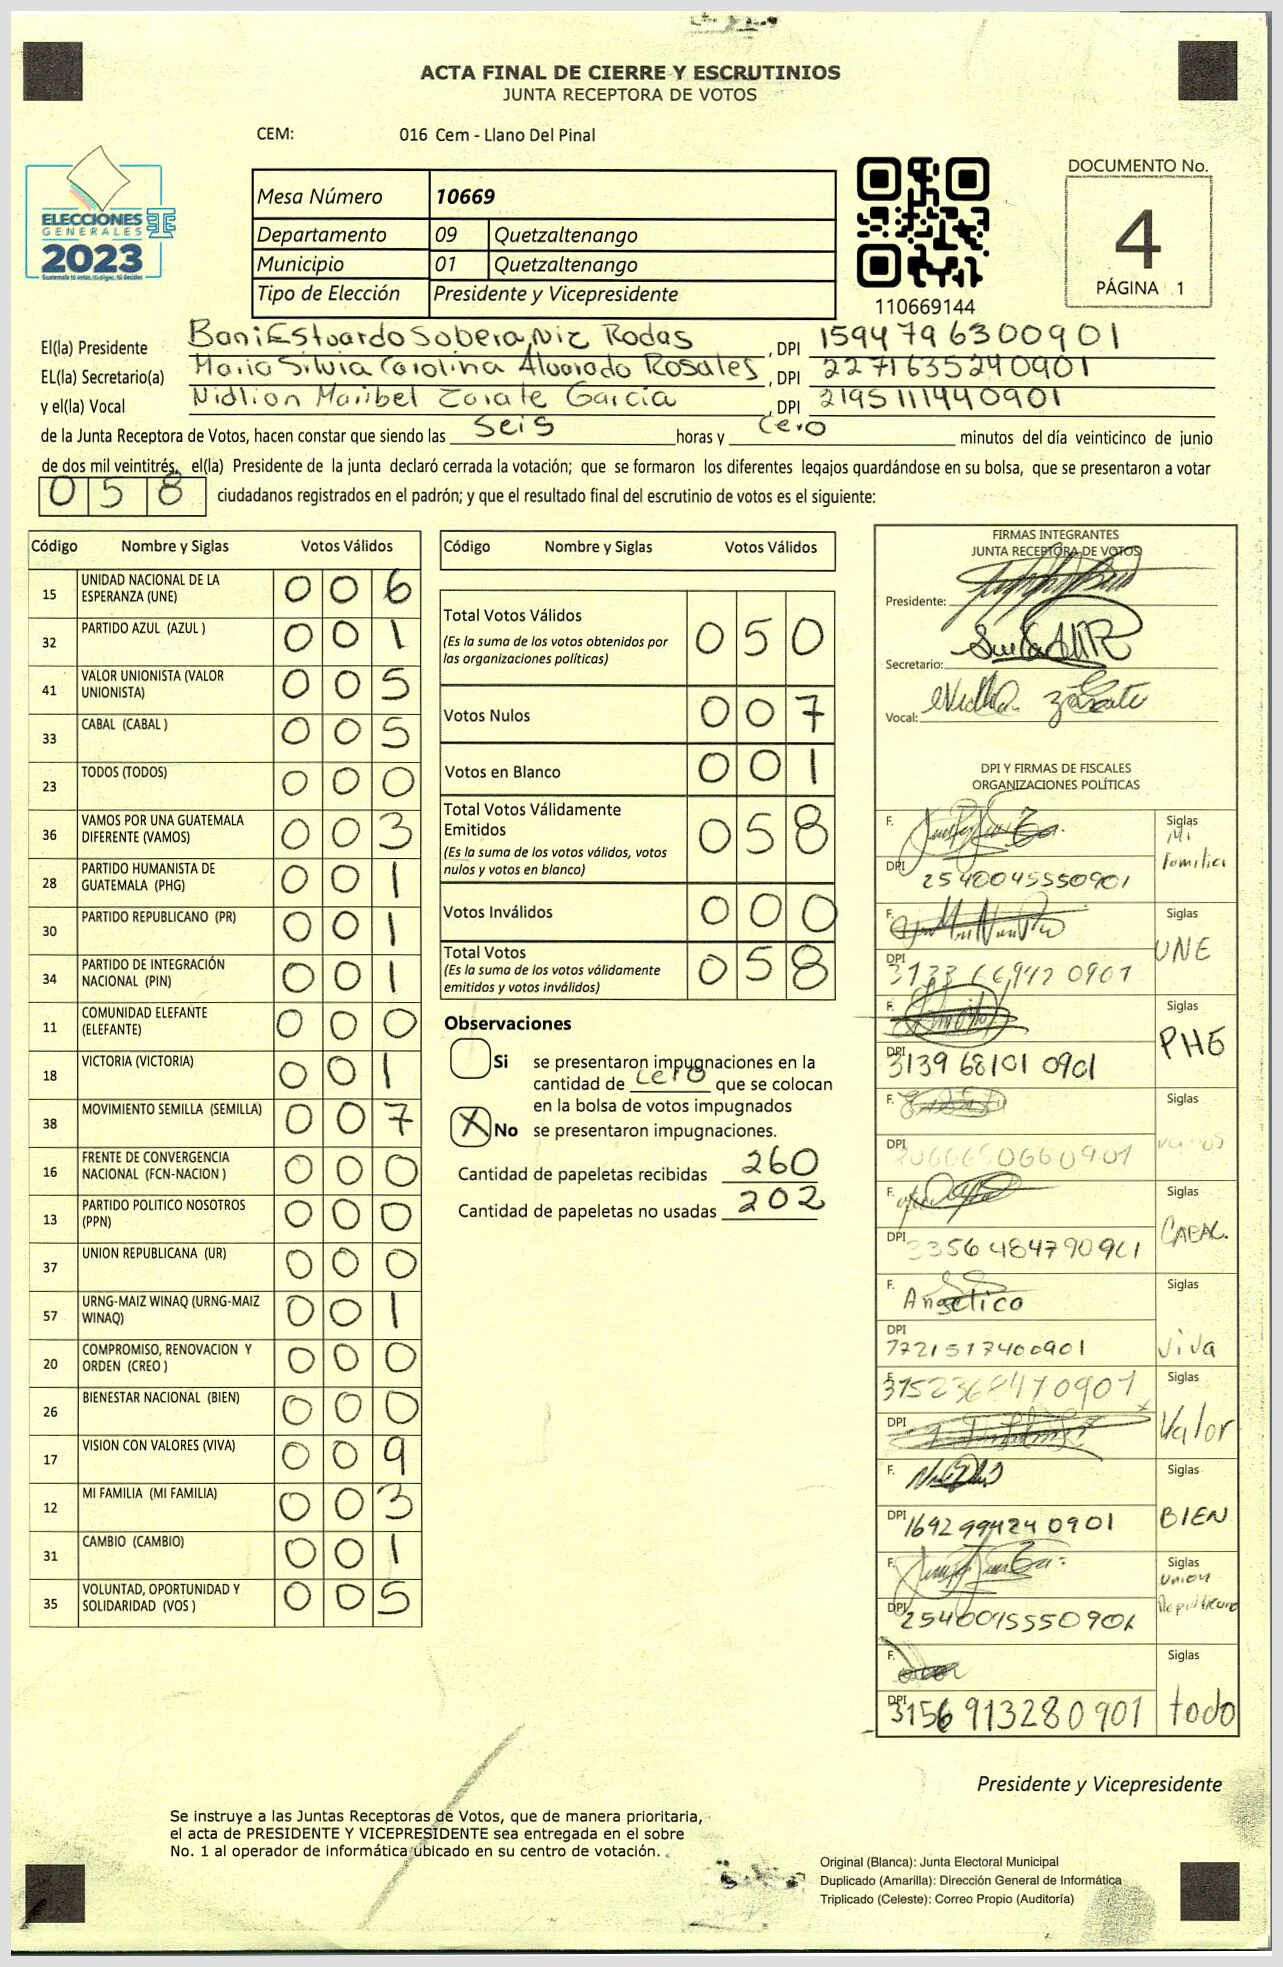 ACTA FINAL DE CIERRE Y ESCRUTINIOS
JUNTA RECEPTORA DE VOTOS
CEM: 016 Cem - Llano Del Pinal
ELECCIONES
GENERALES
2023
Mesa Número 10669
Departamento 09 Quetzaltenango
Municipio 01 Quetzaltenango
Tipo de Elección Presidente y Vicepresidente
110669144
DOCUMENTO No.
4
PÁGINA 1
El(la) Presidente Bani Estuardo Soberaniz Rodas, DPI 1594796300901
EL(la) Secretario(a) Maria Silvia Carolina Alvarado Rosales, DPI 2271635240901
y el(la) Vocal Nidlion Maribel Zarate Garcia, DPI 2195111440901
de la Junta Receptora de Votos, hacen constar que siendo las seis horas y cero minutos del día veinticinco de junio
de dos mil veintitrés, el(la) Presidente de la junta declaró cerrada la votación; que se formaron los diferentes legajos guardándose en su bolsa, que se presentaron a votar
058 ciudadanos registrados en el padrón; y que el resultado final del escrutinio de votos es el siguiente:
Código Nombre y Siglas Votos Válidos
15 UNIDAD NACIONAL DE LA ESPERANZA (UNE) 006
32 PARTIDO AZUL (AZUL ) 001
41 VALOR UNIONISTA (VALOR UNIONISTA) 005
33 CABAL (CABAL ) 005
23 TODOS (TODOS) 000
36 VAMOS POR UNA GUATEMALA DIFERENTE (VAMOS) 003
28 PARTIDO HUMANISTA DE GUATEMALA (PHG) 001
30 PARTIDO REPUBLICANO (PR) 001
34 PARTIDO DE INTEGRACIÓN NACIONAL (PIN) 001
11 COMUNIDAD ELEFANTE (ELEFANTE) 000
18 VICTORIA (VICTORIA) 001
38 MOVIMIENTO SEMILLA (SEMILLA) 007
16 FRENTE DE CONVERGENCIA NACIONAL (FCN-NACION ) 000
13 PARTIDO POLITICO NOSOTROS (PPN) 000
37 UNION REPUBLICANA (UR) 000
57 URNG-MAIZ WINAQ (URNG-MAIZ WINAQ) 001
20 COMPROMISO, RENOVACION Y ORDEN (CREO ) 000
26 BIENESTAR NACIONAL (BIEN) 000
17 VISION CON VALORES (VIVA) 009
12 MI FAMILIA (MI FAMILIA) 003
31 CAMBIO (CAMBIO) 001
35 VOLUNTAD, OPORTUNIDAD Y SOLIDARIDAD (VOS ) 005
Código Nombre y Siglas Votos Válidos
Total Votos Válidos 050
(Es la suma de los votos obtenidos por
las organizaciones políticas)
Votos Nulos 007
Votos en Blanco 001
Total Votos Válidamente
Emitidos 058
(Es la suma de los votos válidos, votos
nulos y votos en blanco)
Votos Inválidos 000
Total Votos 058
(Es la suma de los votos válidamente
emitidos y votos inválidos)
Observaciones
Si se presentaron impugnaciones en la
cantidad de cero que se colocan
en la bolsa de votos impugnados
X No se presentaron impugnaciones.
Cantidad de papeletas recibidas 260
Cantidad de papeletas no usadas 202
FIRMAS INTEGRANTES
JUNTA RECEPTORA DE VOTOS
Presidente:
Secretario:
Vocal:
DPI Y FIRMAS DE FISCALES
ORGANIZACIONES POLÍTICAS
F. Siglas Mi Familia
DPI 2540045550901
F. Siglas UNE
DPI
F. Siglas PHG
DPI 3139681010901
F. Siglas vamos
DPI
F. Siglas CABAL.
DPI 3356484790901
F. Angelico Siglas Viva
DPI
F. Siglas Valor
DPI
F. Siglas BIEN
DPI 1642994240901
F. Siglas Union Republicana
DPI 2540045550901
F. Siglas todo
DPI 3156913280901
Presidente y Vicepresidente
Se instruye a las Juntas Receptoras de Votos, que de manera prioritaria,
el acta de PRESIDENTE Y VICEPRESIDENTE sea entregada en el sobre
No. 1 al operador de informática ubicado en su centro de votación.
Original (Blanca): Junta Electoral Municipal
Duplicado (Amarilla): Dirección General de Informática
Triplicado (Celeste): Correo Propio (Auditoría)